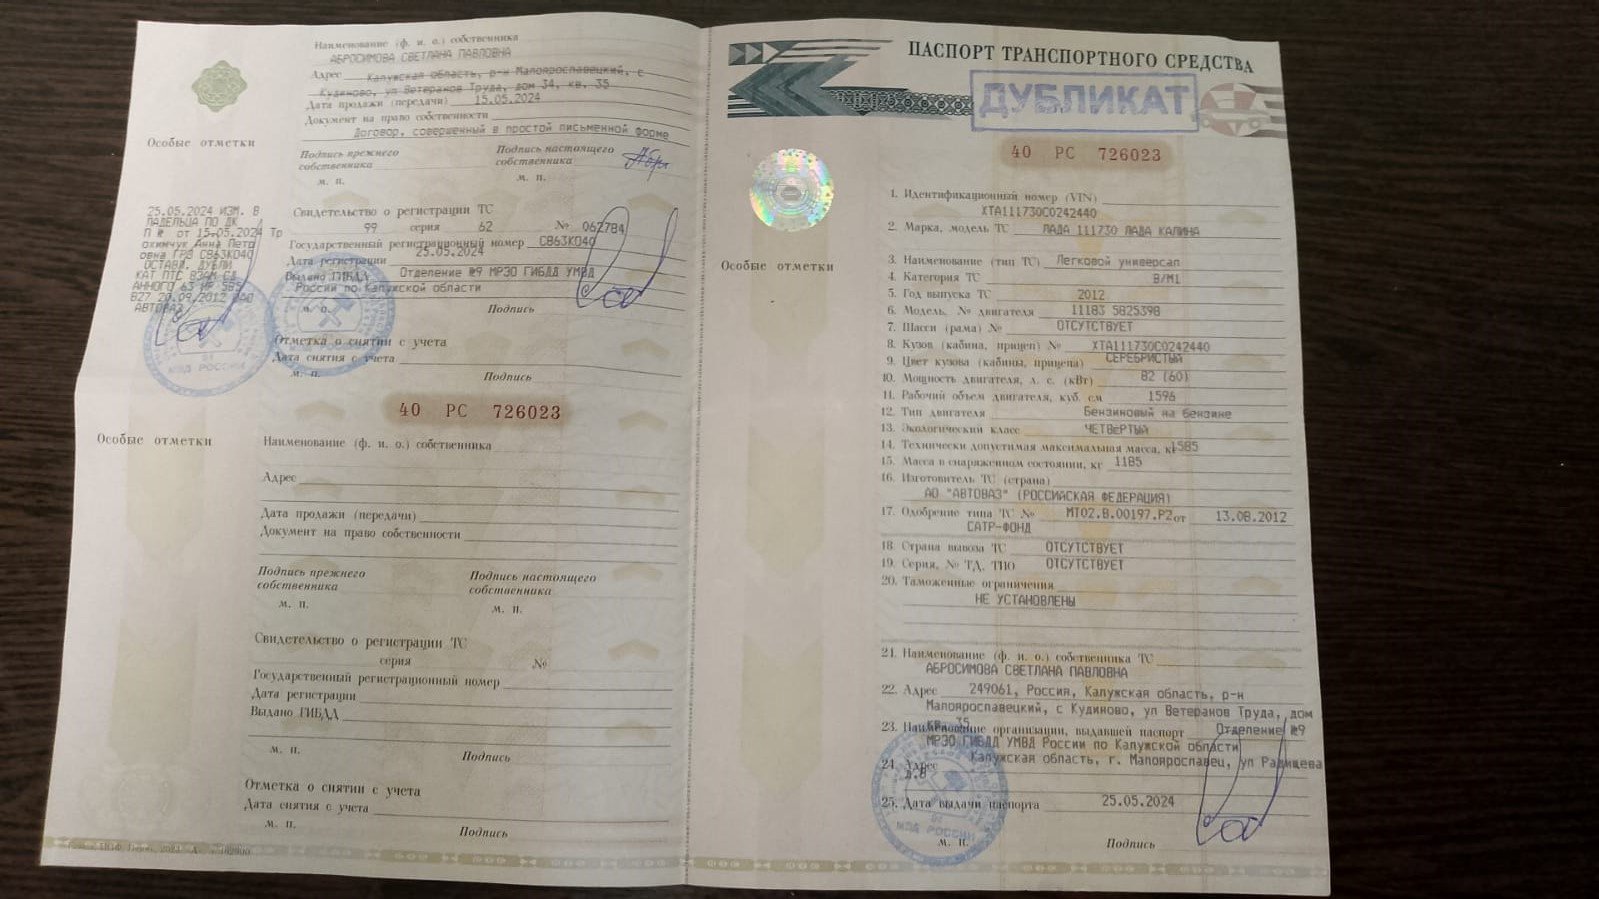 Наименование (ф. и. о.) собственника
АБРОСИМОВА СВЕТЛАНА ПАВЛОВНА
Адрес Калужская область, р-н Малоярославецкий, с
Кудиново, ул Ветеранов Труда, дом 34, кв. 35
Дата продажи (передачи) 15.05.2024
Документ на право собственности
Договор, совершенный в простой письменной форме
Подпись прежнего собственника
Подпись настоящего собственника
м. п.
м. п.
Особые отметки
25.05.2024 ИЗМ. В
ЛАДЕЛЬЦА ПО ДК
П № от 15.05.2024 Тр
охимчук Анна Петр
овна ГРЗ С863КО40
ОСТАВЛ. ДУБЛИ
КАТ ПТС ВЗАМ СД
АННОГО 63 НР 585
827 20.09.2012 ОАО
АВТОВАЗ
МВД РОССИИ
Свидетельство о регистрации ТС
99 серия 62 № 062784
Государственный регистрационный номер С863КО40
Дата регистрации 25.05.2024
Выдано ГИБДД Отделение №9 МРЭО ГИБДД УМВД
России по Калужской области
м. п.
Подпись
Отметка о снятии с учета
Дата снятия с учета
м. п.
Подпись
40 РС 726023
Особые отметки
Наименование (ф. и. о.) собственника
Адрес
Дата продажи (передачи)
Документ на право собственности
Подпись прежнего собственника
Подпись настоящего собственника
м. п.
м. п.
Свидетельство о регистрации ТС
серия №
Государственный регистрационный номер
Дата регистрации
Выдано ГИБДД
м. п.
Подпись
Отметка о снятии с учета
Дата снятия с учета
м. п.
Подпись
ПАСПОРТ ТРАНСПОРТНОГО СРЕДСТВА
ДУБЛИКАТ
40 РС 726023
Особые отметки
1. Идентификационный номер (VIN)
XTA111730C0242440
2. Марка, модель ТС ЛАДА 111730 ЛАДА КАЛИНА
3. Наименование (тип ТС) Легковой универсал
4. Категория ТС B/M1
5. Год выпуска ТС 2012
6. Модель, № двигателя 11183 5825398
7. Шасси (рама) № ОТСУТСТВУЕТ
8. Кузов (кабина, прицеп) № XTA111730C0242440
9. Цвет кузова (кабины, прицепа) СЕРЕБРИСТЫЙ
10. Мощность двигателя, л. с. (кВт) 82 (60)
11. Рабочий объем двигателя, куб. см 1596
12. Тип двигателя Бензиновый на бензине
13. Экологический класс ЧЕТВЕРТЫЙ
14. Технически допустимая максимальная масса, кг 1585
15. Масса в снаряженном состоянии, кг 1185
16. Изготовитель ТС (страна)
АО "АВТОВАЗ" (РОССИЙСКАЯ ФЕДЕРАЦИЯ)
17. Одобрение типа ТС № МТ02.В.00197.Р2 от 13.08.2012
САТР-ФОНД
18. Страна вывоза ТС ОТСУТСТВУЕТ
19. Серия, № ТД, ТПО ОТСУТСТВУЕТ
20. Таможенные ограничения
НЕ УСТАНОВЛЕНЫ
21. Наименование (ф. и. о.) собственника ТС
АБРОСИМОВА СВЕТЛАНА ПАВЛОВНА
22. Адрес 249061, Россия, Калужская область, р-н
Малоярославецкий, с Кудиново, ул Ветеранов Труда, дом
кв. 35
23. Наименование организации, выдавшей паспорт Отделение №9
МРЭО ГИБДД УМВД России по Калужской области
24. Адрес Калужская область, г. Малоярославец, ул Радищева
д.8
25. Дата выдачи паспорта 25.05.2024
м. п.
Подпись
МВД РОССИИ